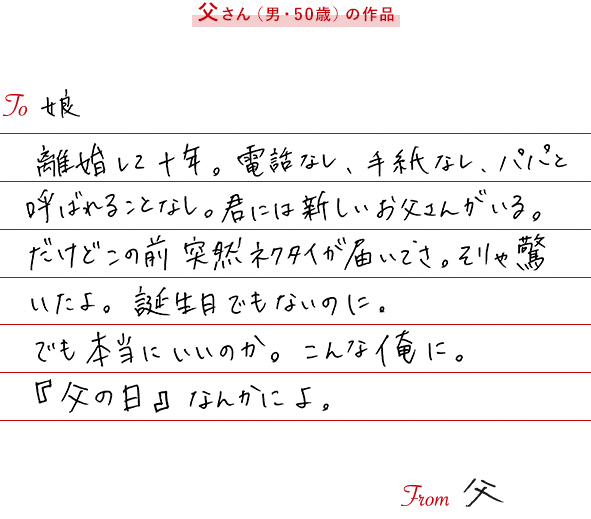 父さん（男・50歳）の作品
To 娘
離婚して十年。電話なし、手紙なし、パパと
呼ばれることなし。君には新しいお父さんがいる。
だけどこの前突然ネクタイが届いてさ。そりゃ驚
いたよ。誕生日でもないのに。
でも本当にいいのか。こんな俺に。
『父の日』なんかによ。
From 父